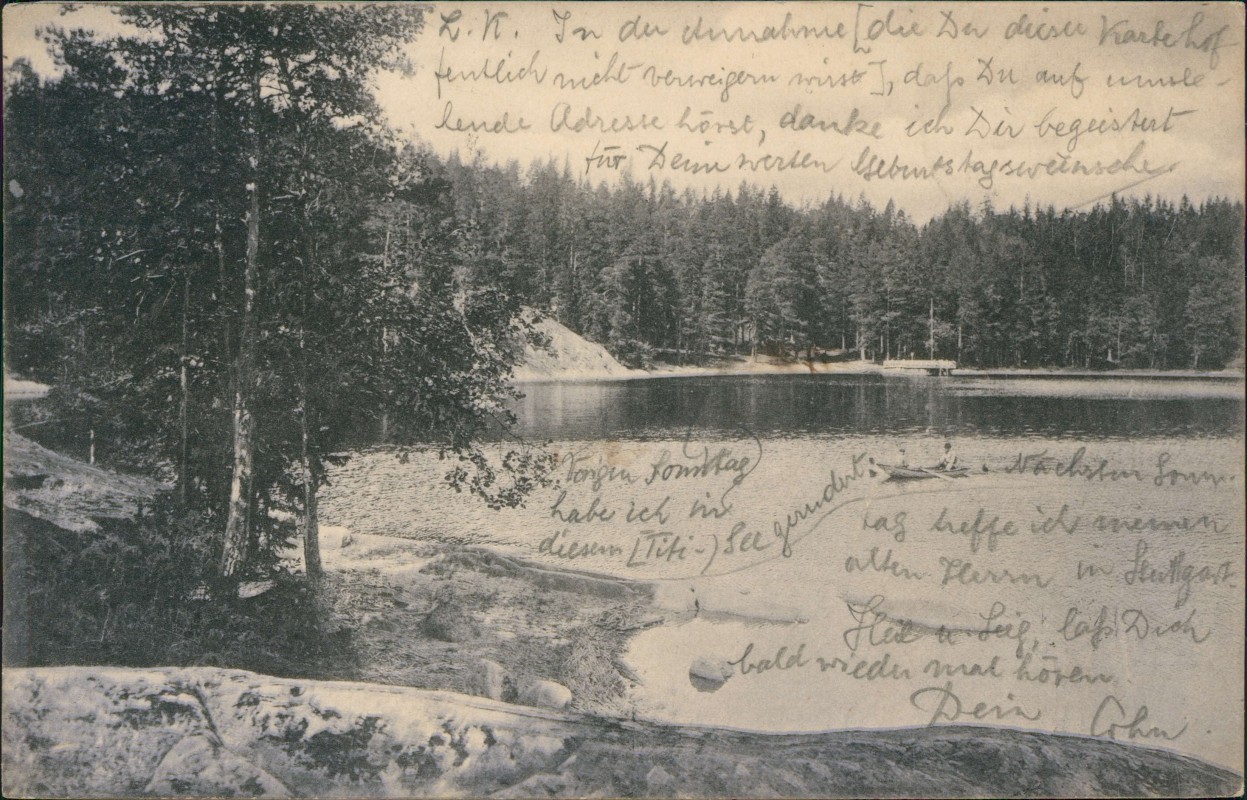 L. K. In der Annahme [die Du dieser Karte hof
fentlich nicht verweigern wirst], daß Du auf umste-
hende Adresse hörst, danke ich Dir begeistert
für Deine werten Geburtstagswünsche.
Vorigen Sonntag
habe ich in
diesem [Titi-] See gerudert:
Nächsten Sonn-
tag treffe ich meinen
alten Herrn in Stuttgart.
Heil u. Sieg, laß Dich
bald wieder mal hören
Dein Cohn.